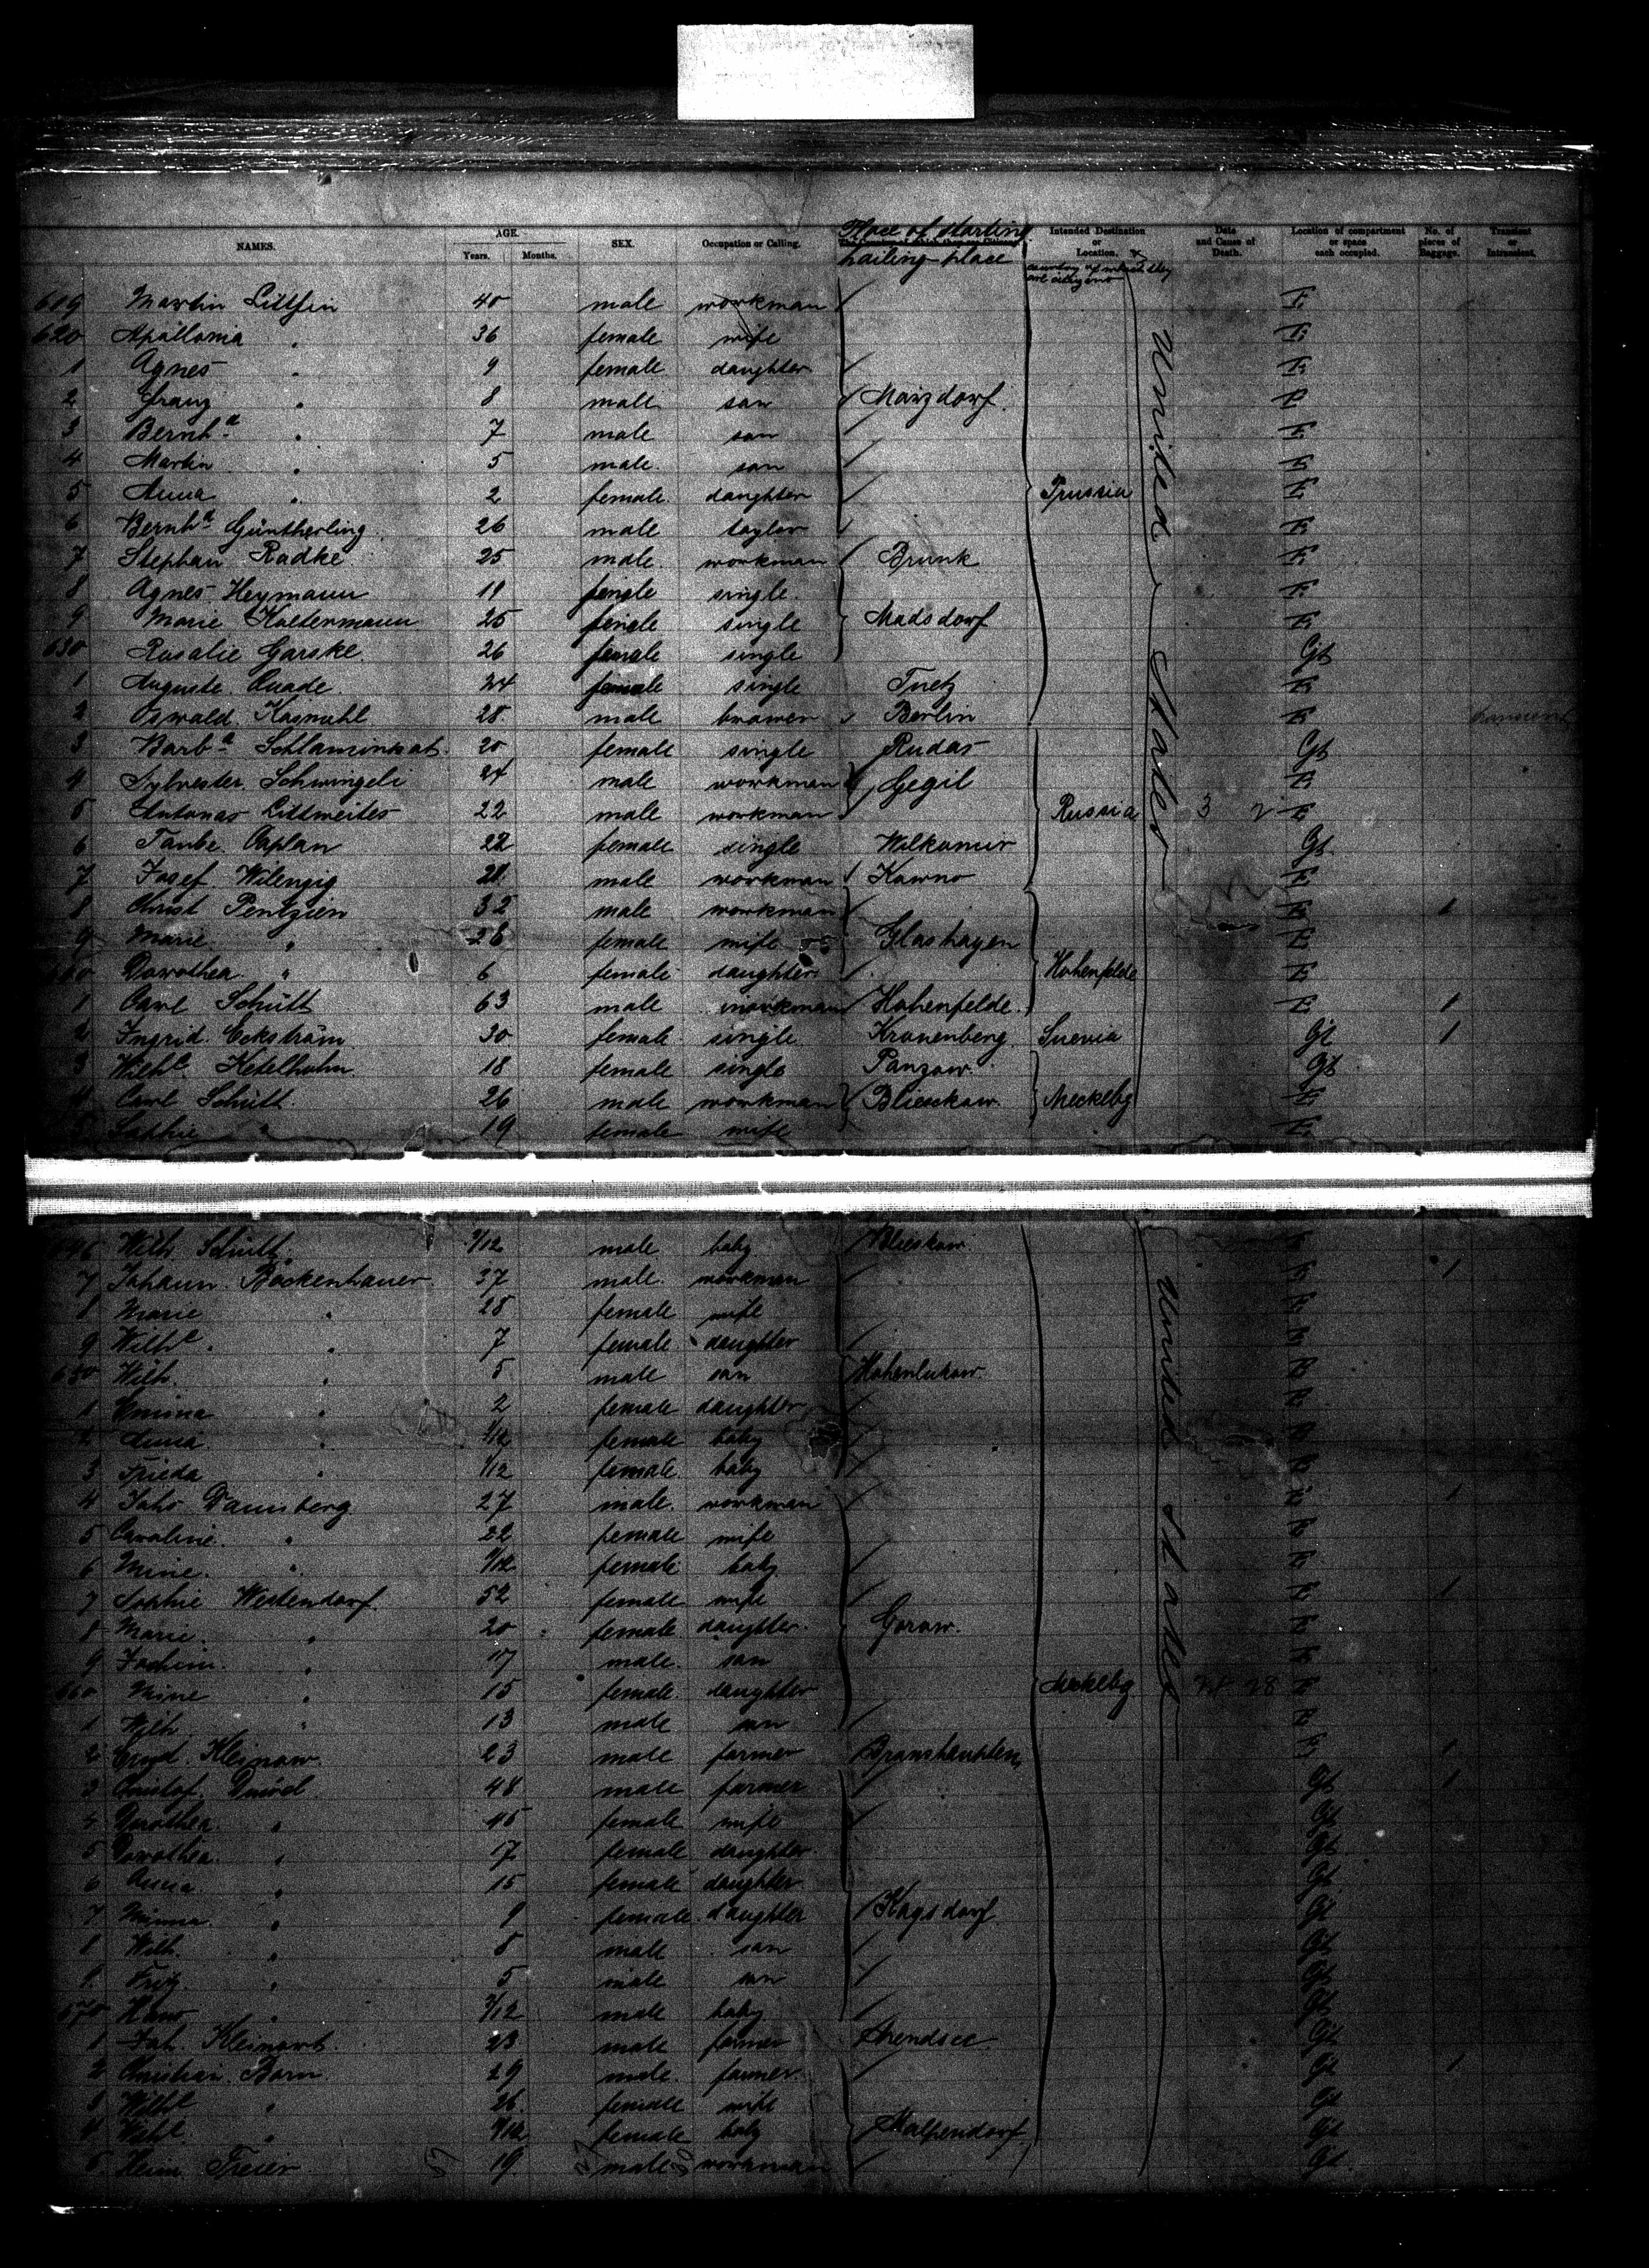 NAMES. AGE. Years. Months. SEX. Occupation or Calling. Place of starting hailing place Intended Destination or Location. & country of which they are citizens Date and Cause of Death. Location of compartment or space each occupied. No. of pieces of Baggage. Transient or Intransient.
619 Martin Littfin 40 male workman E
620 Apollonia " 36 female wife E
1 Agnes " 9 female daughter E
2 Franz " 8 male son Marzdorf E
3 Bernhd " 7 male son E
4 Martin " 5 male son E
5 Anna " 2 female daughter Prussia United States E
6 Bernhd Güntherling 26 male taylor E
7 Stephan Radke 25 male workman Brunk E
8 Agnes Heymann 19 female single E
9 Marie Koltermann 25 female single Madsdorf E
630 Rosalie Garske 26 female single Gt
1 Auguste Quade 24 female single Tuetz E
2 Oswald Kasnahl 28 male brawer Berlin E transient
3 Barba 20 female single Rudas Gt
4 Sylvester Schwingeli 24 male workman Gegil E
5 Antonas Littweites 22 male workman Russia 3 2 E
6 Taube Caplan 22 female single Wilkomir Gt
7 Josef Wilenzig 21 male workman Kowno E
8 Christ Pentzien 32 male workman E 1
9 Marie " 26 female wife Glashagen E
640 Dorothea " 6 female daughter Hohenfelde E
1 Carl Schütt 63 male workman Hohenfelde E 1
2 Ingrid Eckström 30 female single Kronenberg Suevia Gt 1
3 Wilhe Ketelhohn 18 female single Panzow Gt
4 Carl Schütt 26 male workman Blieschow Meckelbg E
5 Sophie " 19 female wife E
646 Wilh Schütt 9/12 male baby Blieskow E
7 Johann Böckenhauer 37 male workman E 1
8 Marie " 28 female wife E
9 Wilhe " 7 female daughter E
650 Wilh. " 5 male son Hohenlukow E
1 Emma " 2 female daughter E
2 Anna " 1/12 female baby E
3 Frieda " 1/12 female baby E
4 Johs Dannberg 27 male workman E 1
5 Caroline " 22 female wife E
6 Mine " 9/12 female baby E
7 Sophie Westendorf 52 female wife E 1
8 Marie " 20 female daughter Gorow E
9 Jochim " 17 male son E
660 Mine " 15 female daughter Meckelbg United States 28 E
1 Wilh " 13 male son E
2 Kleinow 23 male farmer E 1
3 Christof 48 male farmer Gt 1
4 Dorothea " 45 female wife Gt
5 Dorothea " 17 female daughter Gt
6 Anna " 15 female daughter Gt
7 Minna " 9 female daughter Kägsdorf Gt
8 Wilh. " 8 male son Gt
9 Fritz " 5 male son Gt
670 Hans " 3/12 male baby Gt
1 Joh. 23 male farmer Arendsee Gt
2 Christian Born 29 male farmer Gt 1
3 Wilhe " 26 female wife Gt
4 Wilhe " 9/12 female baby Malpendorf Gt
5 Heinr Freier 19 male workman Gt